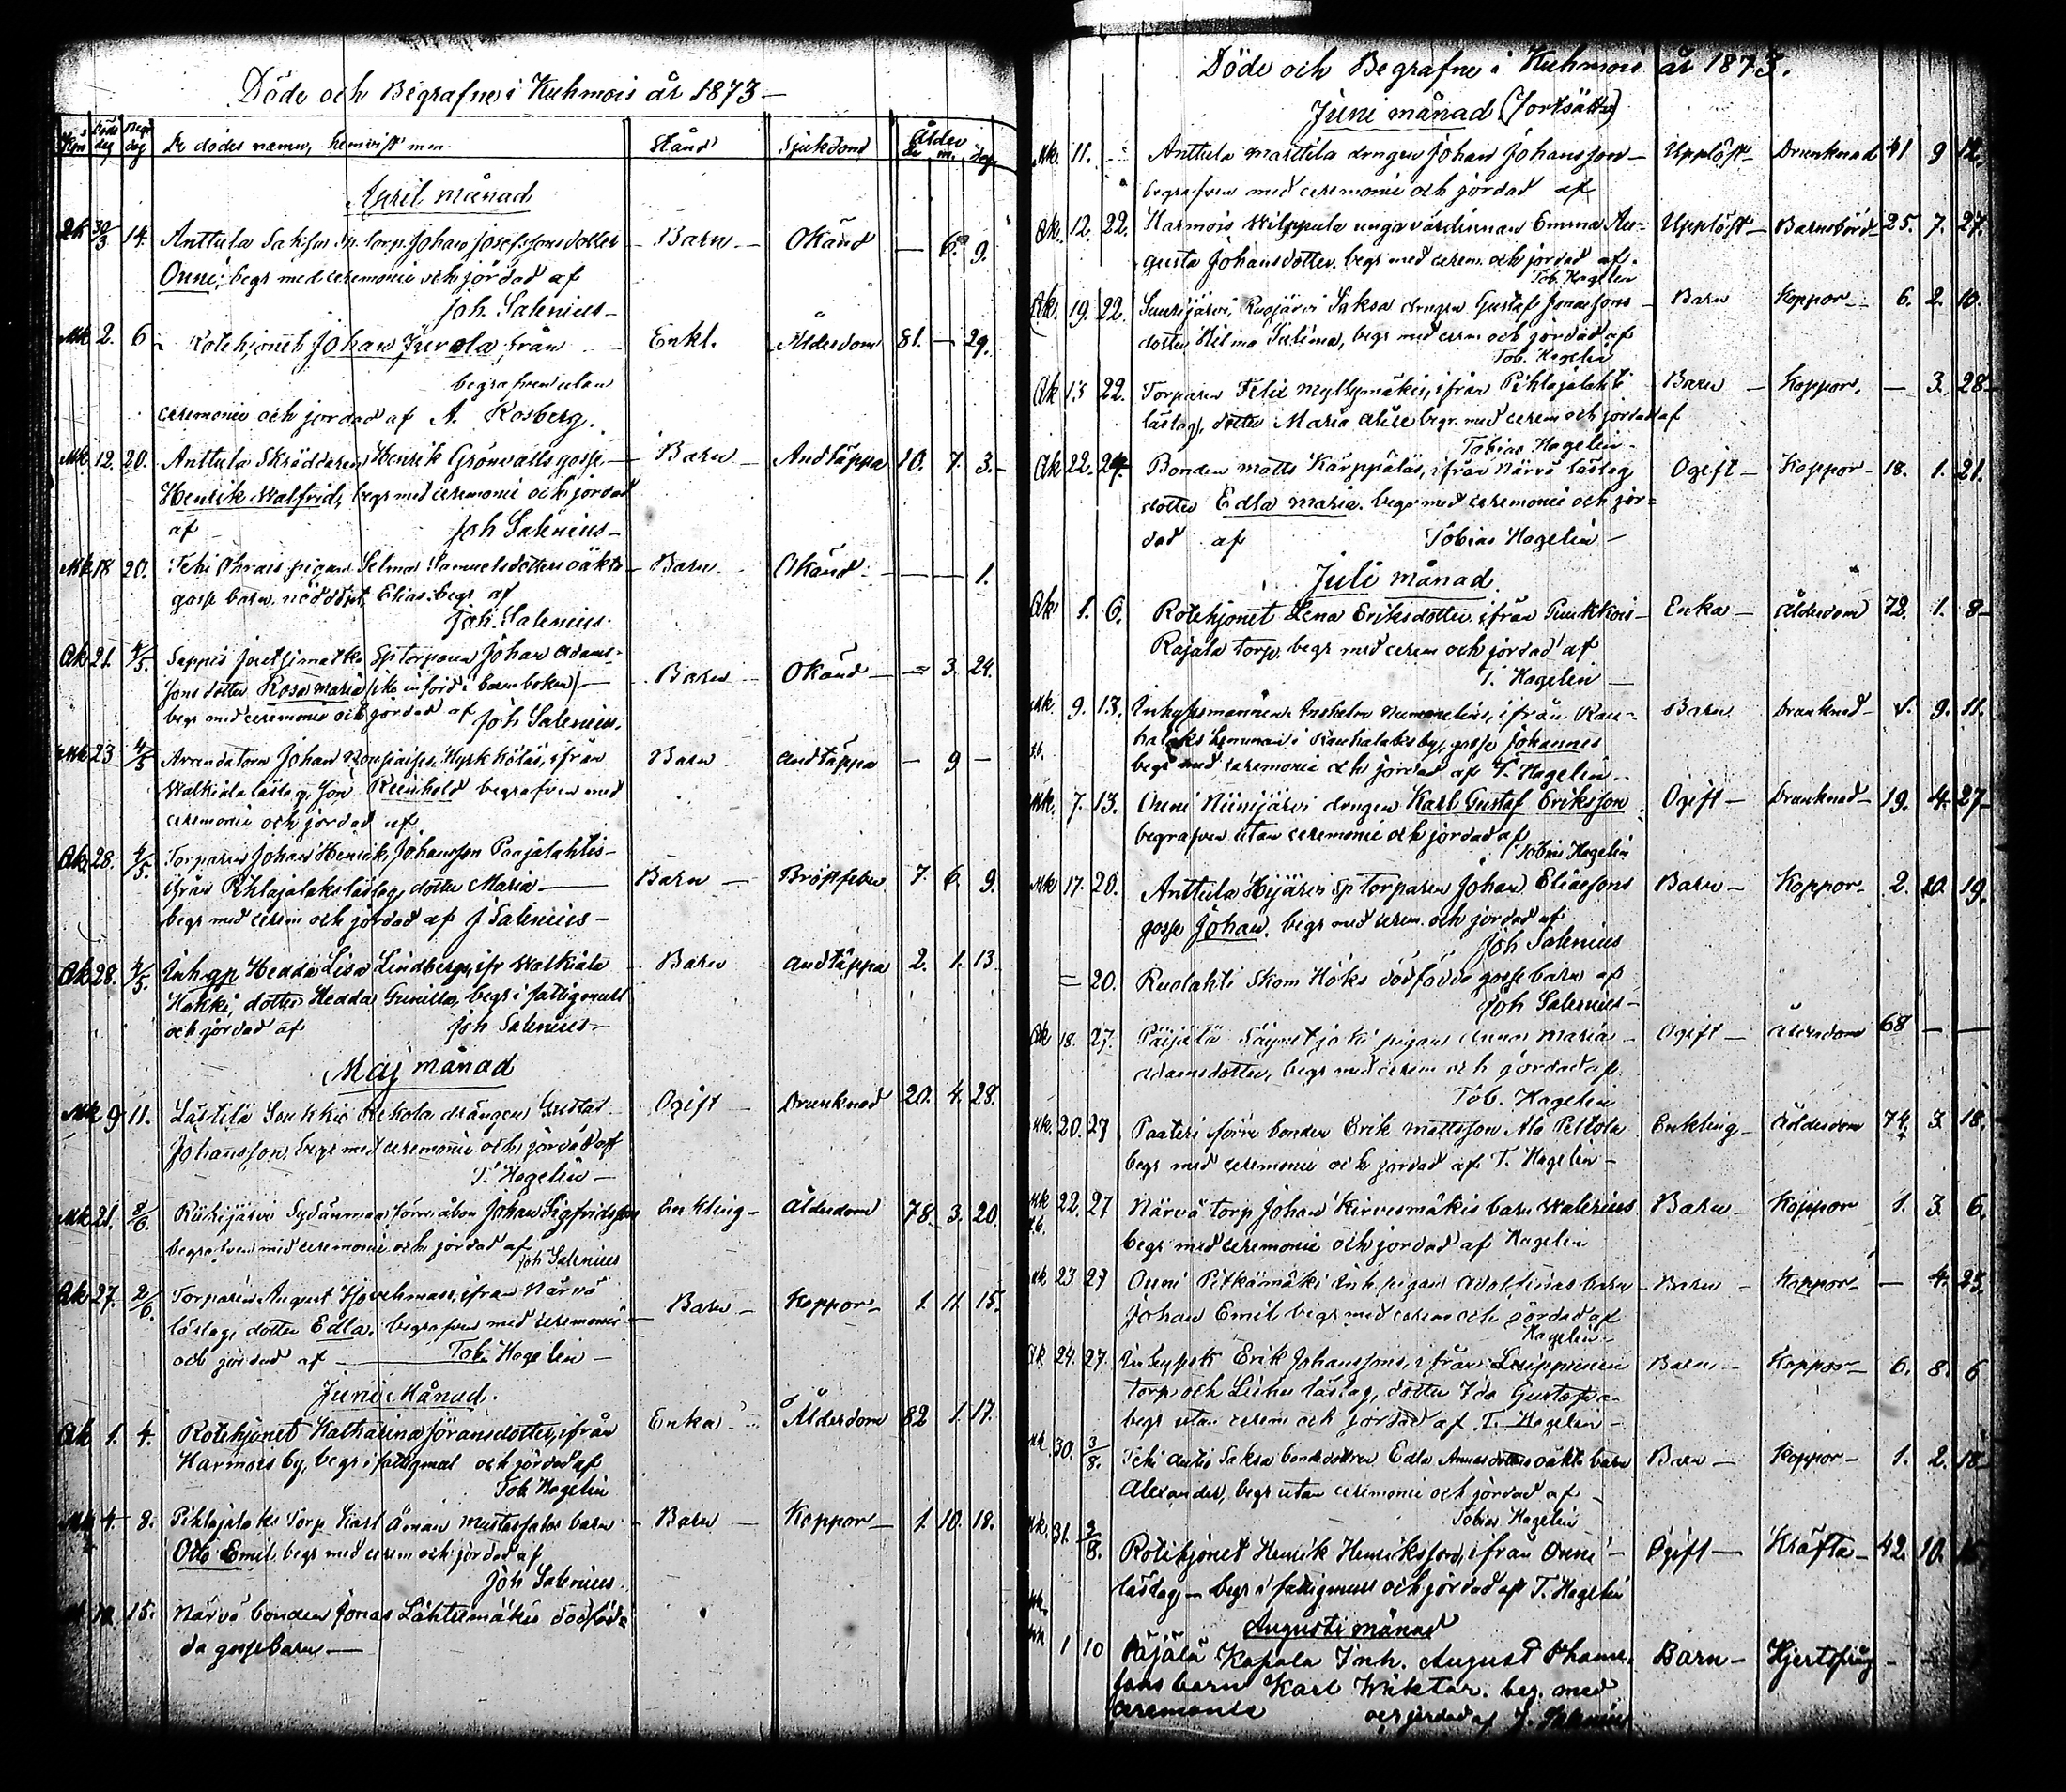 Döde och Begrafne i Kuhmois år 1873 —
Kön Döds dag Begr dag De dödes namn, hemvist m.m. Stånd Sjukdom Ålder år m. dag
April månad
Qk 30/3 14. Anttula Torp. Johan Josefssons dotter — Barn — Okänd — 6. 9.
Onni; begr med ceremonie och jordad af
Joh. Salenius —
Mk 2. 6 Rotehjonet Johan från Enkl. Ålderdom 81. — 29.
begrafven utan
ceremonie och jordad af A. Rosberg.
Mk 12. 20. Anttula Skräddaren Henrik Grönvalls gosse — Barn — Andtäppa 10. 7. 3.
Henrik Walfrid, begr med ceremonie och jordad
af Joh Salenius —
Mk 18 20. Tehi pigan Selma Samuelsdotters oäkta Barn Okänd — — 1.
gosse barn nöddöpt Elias begr af
Joh. Salenius.
Qk 21. 4/5. Sappis Sp torparen Johan Adams-
sons dotter Rosa Maria (ike införd i barnboken) — Barn — Okänd — — 3. 24.
begr med ceremonie och jordad af Joh Salenius.
Mk 23 4/5 Arrendatorn Johan ifrån Barn Andtäppa — 9 —
Walkiala låslag, son Reinhold begrafven med
ceremonie och jordad af
Qk 28. 4/5. Torparen Johan Henrik Johansson Paajalahtis
ifrån Pihlajalaks låslag, dotter Maria — Barn — Bröstfeber 7. 6. 9.
begr med cerem och jordad af J Salenius —
Qk 28. 4/5. Inh.gp Hedda Lisa Lindberg, ifr Walkiala Barn Andtäppa 2. 1. 13
Hakki, dotter Hedda Gunilla, begr i fattigmull
och jordad af Joh Salenius —
Maj månad
Mk 9 11. Lästilä drängen Gustaf Ogift — Drunknad 20. 4. 28.
Johansson begr med ceremonie och jordad af
T. Hagelin —
Mk 21. 2/6. Sydänmaa förre åbon Johan Sigfridsson Enkling — Ålderdom 78. 3. 20.
begrafven med ceremonie och jordad af
Joh Salenius
Qk 27. 2/6. Torparen August ifrån Närvä
låslag, dotter Edla, begrafven med ceremonie — Barn — Koppor — 1. 11. 15.
och jordad af — Tob. Hagelin —
Juni Månad.
Qk 1. 4. Rotehjonet Katharina Göransdotter, ifrån Enka Ålderdom 82 1. 17.
Harmois by, begr i fattigmul och jordad af
Tob Hagelin
Mk 4. 8. Torp Karl barn — Barn — Koppor — 1. 10. 18.
Otto Emil begr med cerem och jordad af
Joh Salenius.
15. Närvä bonden Jonas dödföd-
da gossebarn —
Döde och Begrafne i Kuhmois år 1873.
Juni månad (Fortsättn)
Mk. 11. Anttula Marttila drengen Johan Johansson — Upplöst — Drunknad 41 9 12.
begrafven med ceremonie och jordad af
Qk. 12. 22. Harmois Wilppula unga värdinnan Emma Au- Upplöst — Barnsbörd — 25. 7. 27.
gusta Johansdotter. begr med cerem. och jordad af.
Tob. Hagelin
Qk. 19. 22. Saksa drengen Gustaf Jonassons Barn Koppor — 6. 2. 10.
dotter Hilma begr med cerem och jordad af
Tob. Hagelin
Qk 13 22. Torparen Felix Myllymäkis, ifrån Pihlajalahti Barn — Koppor. — 3. 28
låslag, dotter Maria begr. med cerem och jordad af
Tobias Hagelin
Qk 22. 29. Bonden Matts Kärppäläs, ifrån Närvä låslag, Ogift — Koppor — 18. 1. 21.
dotter Edla Maria. begr med ceremonie och jor-
dad af Tobias Hagelin —
Juli månad
Qk 1. 6. Rotehjonet Lena Eriksdotter ifrån Puukkois Enka — Ålderdom 72. 1. 8
Rajala torp. begr med cerem och jordad af
T. Hagelin —
Mk. 9. 13. Inhysesmannen ifrån Barn Drunknad 9. 11.
gosse Johannes
begr med ceremonie och jordad af T. Hagelin.
Mk. 7. 13. Onni Niinijärvi drengen Karl Gustaf Eriksson Ogift — Drunknad — 19. 4. 27
begrafven utan ceremonie och jordad af
Tobias Hagelin
Mk 17. 20. Anttula Sp Torparen Johan Eliassons Barn — Koppor — 2. 10. 19.
gosse Johan. begr med cerem. och jordad af
Joh Salenius
= 20. Ruolahti Skom Höks dödfödda gosse barn af
Joh Salenius —
Qk 18. 27. Päijälä pigan Anna Maria Ogift — Ålderdom 68 — —
Adamsdotter, begr med cerem och jordad af
Tob. Hagelin
Mk. 20. 27 Paateri förre bonden Erik Mattsson Ala Peltola Enkling — Ålderdom 74. 3. 18.
begr med ceremonie och jordad af T. Hagelin —
Mk 22. 27 Närvä torp Johan Kirvesmäkis barn Walerius Barn — Koppor 1. 3. 6.
begr med ceremonie och jordad af Hagelin
Mk 23. 27 Onni Pitkämäki Inh pigan Adolfinas barn — Barn — Koppor — — 4. 25.
Johan Emil begr med cerem och jordad af
Hagelin —
Qk 24. 27. Inhysesk Erik Johanssons, ifrån Barn — Koppor — 6. 8. 6
torp och låslag, dotter Ida Gustafva
begr utan cerem och jordad af T. Hagelin —
Mk. 30. 3/8. Tehi Saksa bondedottren Edla oäkta barn Barn — Koppor — 1. 2. 18
Alexander, begr utan ceremonie och jordad af —
Tobias Hagelin
Mk. 31. 3/8. Rotehjonet Henrik Henriksson, ifrån Onni — Ogift — Kräfta — 42. 10.
låslag, — begr i fattigmull och jordad af T. Hagelin
Augusti månad
1 10 Päjälä Kapala Inh. August Thoma- Barn — Hjertsprång —
sons barn Karl Wiktor. beg. med
ceremonie och jordad af J. Salenius